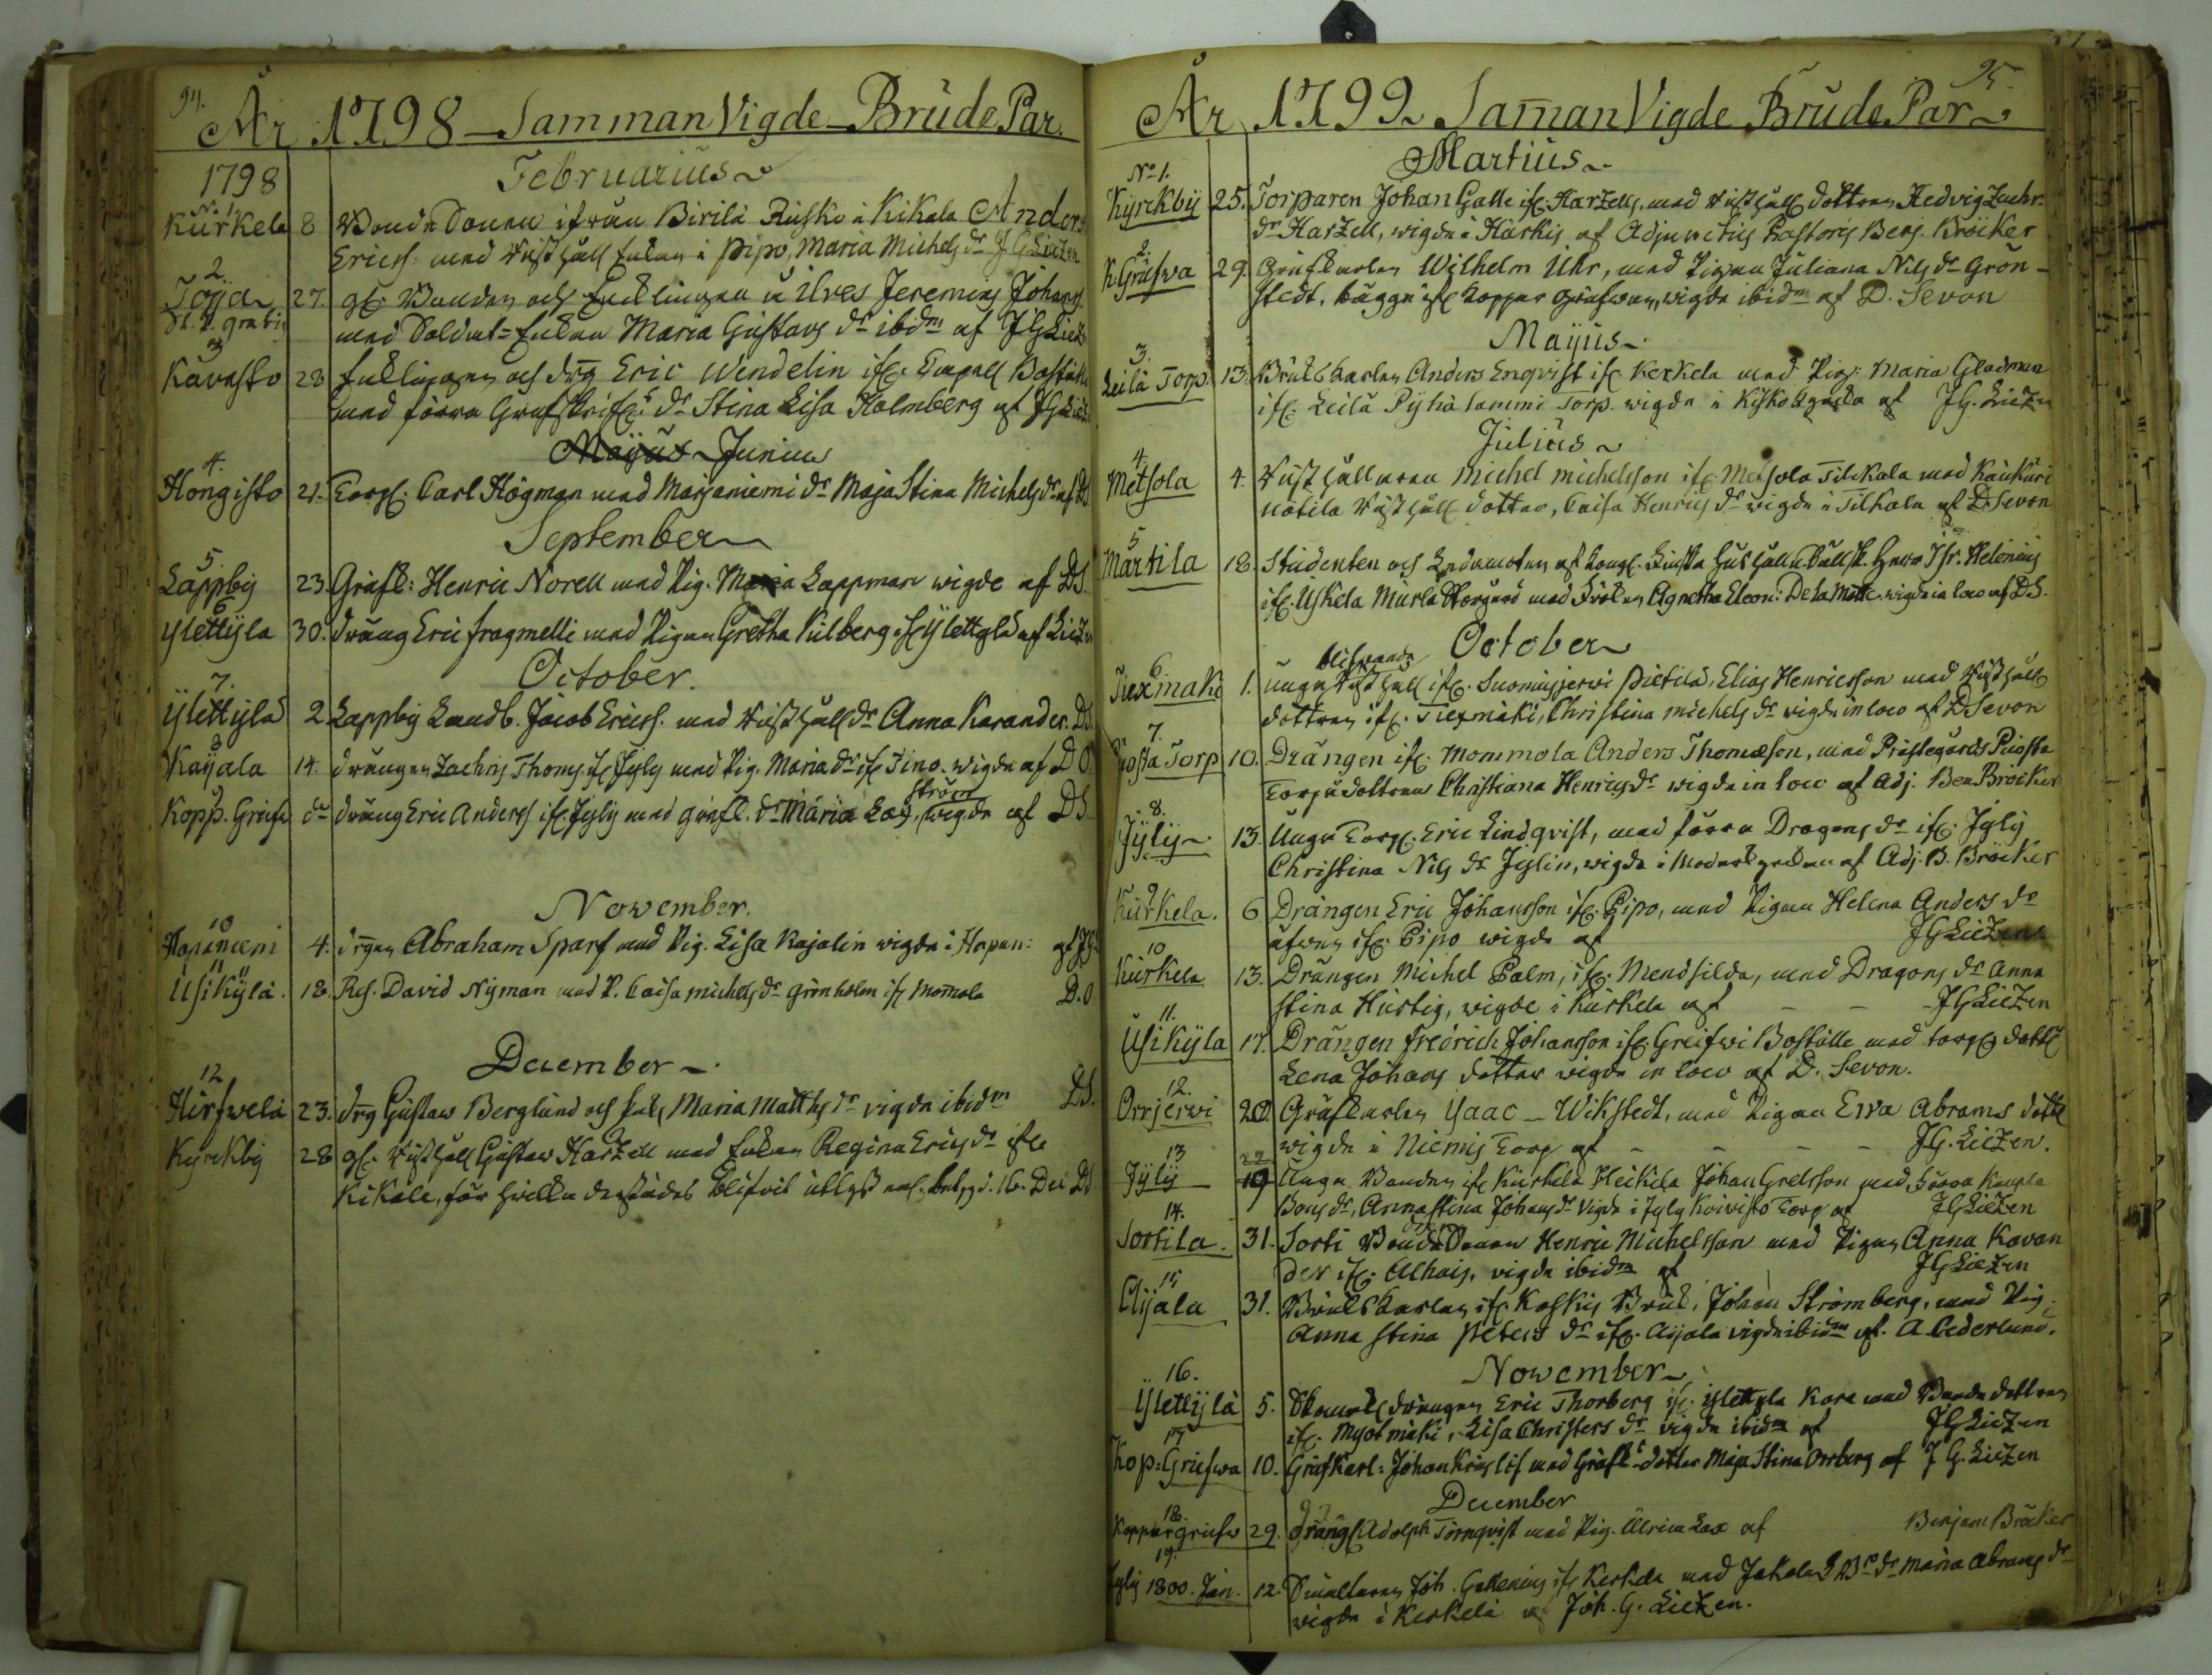 94.
År 1798 Samman Vigde Brude Par.
1798
Februarius
No 1.
Kurkela 8 Bonde Sonen ifrån Birilä Rusko i Kikala Anders
Ericss: med Rusthåll Enkan i Pipo, Maria Michels dr JGLiezen
2
Toija 27. gl. Bonden och Enklingen i Ilves Jeremias Johans
med Soldat Enkan Maria Gustavs dr ibidm af JGLiez
3
Kavasto 28 Enklingen och drg Eric Wendelin Boställe
med förra dr Stina Lisa Holmberg af JGLiez
Majus Junius
4.
Hongisto 21. Torp. Carl Högman med Marjaniemi dr Maja Stina Michels dr af DS
September
5
Lappby 23. Grufk: Henric Norell med Pig. Maria Lappman wigde af DS.
6
Ylettyla 30. dräng Eric fragmelli med Pigan Gretha Pilberg Ylettylä af Liezn
October.
7.
Ylettylä 2 Lappby Landb. Jacob Ericss. med Rusthålls dr Anna Karander. DS
8
Kaijala 14. drängen Zachris Thoms. Jyly med Pig. Maria dr Tino. wigda af D O
Kopp. Grufw do dräng Eric Anderss Jyly med grufk. dr Maria Lag,ström wigde af DS
November.
10
Hapaniemi 4. drgen Abraham Sparf med Pig. Lisa Kajalin wigda i Hapan: af JG
11
Usikylä. 18. Rs. David Nyman med P. Caisa michels dr Grönholm Mommola D.O
December
12
Hirfwelä 23. drg Gustaw Berglund och Maria Matths dr vigda ibidm DS.
Kyrckby 28 gl. Rusthåll Gustaw Harzell med Enkan Regina Erics dr
Kikala, för hvilka derstädes blifvit utlyst d. 16. Dec DS
95.
År 1799 Samman Vigde Brude Par
Martius
No 1.
Kyrckby 25. Torparen Johan Galle ifr. Harzells, med Rusthåll dottren Hedvig Zachr.
dr Harzell, wigda i Härkis af Adjunctus Pastoris Benj. Bröcker
2.
K. Grufwa 29. Grufkarlen Wilhelm Uhr, med Pigan Juliana Nils dr Grön-
stedt, bägge ifr Koppar Grufwan, wigda ibidm af D. Sevon
Majus
3.
Leilä Torp. 13. Bruks karlen Anders Engvist ifr. Kerkela med Pig: Maria Gladman
ifr. Leilä Pyhäsammi Torp. wigda i Kisko af JG. Liezen
Julius
4.
Metsola 4. Rusthållaren Michel michelsson ifr. Metsola Tilkala med Kaukuri
nötila Rusthåll dotter, Caisa Henrics dr wigda i Tilkala af DSevon
5
Martila 18. Studenten och Ledamoten af Kongl. Finska Hushålln. Sällsk. Herr Isr. Helenius
ifr. Uskela Murla Herrgård med Fröken Agnetha Eleon: De la Motte wigda in loco af DS.
October
6
Tiexmäki 1. blifwande unga Rusthåll ifr. Suomusjerwi Pietilä, Elias Henricsson med Rusthålls
dottren ifr. Tiexmäki, Christina michels dr wigda in loco af DSevon
7.
Puosta Torp 10. Drängen ifr. Mommola Anders Thomæson, med Prästegårds Puosta
Torp dottren Christiana Henrics dr wigda in loco af Adj. Ben Bröcker
8.
Jyly 13. Unga Torp. Eric Lindqvist, med förra Dragons dr ifr. Jyly
Christina Nils dr Jylin, wigda i Moderkyrkan af Adj. B. Bröcker
9
Kurkela. 6 Drängen Eric Johansson ifr. Pipo, med Pigan Helena Anders dr
äfwen ifr. Pipo wigda af JGLiezen
10
Kurkela 13. Drängen Michel Palm, ifr. Mendsilda, med Dragons dr Anna
Stina Hurtig, wigde i Kurkela af - - JGLiezen
11.
Usikyla 17. Drängen Fredrich Johansson ifr. Greifwi Boställe med torp. dottr
Lena Johans dotter wigda in loco af D. Sevon.
12.
Orrjerwi 20. Grufkarlen Ysaac Wikstedt, med Pigan Ewa Abrams dottr
wigda i Niemis Torp af - - - - JG. Liezen.
13 22
Jyly 19 Unga Bonden ifr Kurkela Heikila Johan Gretsson med förra Kaupla
Bons dr, Anna Stina Johans dr Vigda i Jyly Koivisto Torp af JGLiezen
14.
Sortila. 31. Sorti Bonde Sonen Henric Michelsson med Pigan Anna Kavan
der ifr. Alhais, vigda ibidm af JGLiezen
15
Aijala 31. Bruks karlen ifr. Koskis Bruk, Johan Strömberg, med Pig.
Anna Stina Peters dr ifr. Aijala vigda ibidm af. A Cederlund.
November
16.
Yletlylä 5. drängen Eric Thorberg ifr. Ylettyla Kare med Bonde dottren
ifr. Myolmäki, Lisa Christers dr vigda ibidm af JGLiezen
17
Kop: Grufwa 10. Grufkarl: Johan Krigslif med Grufk. dotter Maja Stina Orrberg af J G. Liezen
December
18.
Koppargrufw 29. dräng Adolph Törnqvist med Pig. Ulrica Lax af Benjam Bröcker
19.
Jyly 1800. Jan. 12. Joh. Gallenius ifr Kerkela med Jakola dr Maria Abrams dr
wigda i Kerkela af Joh. G. Liezen.